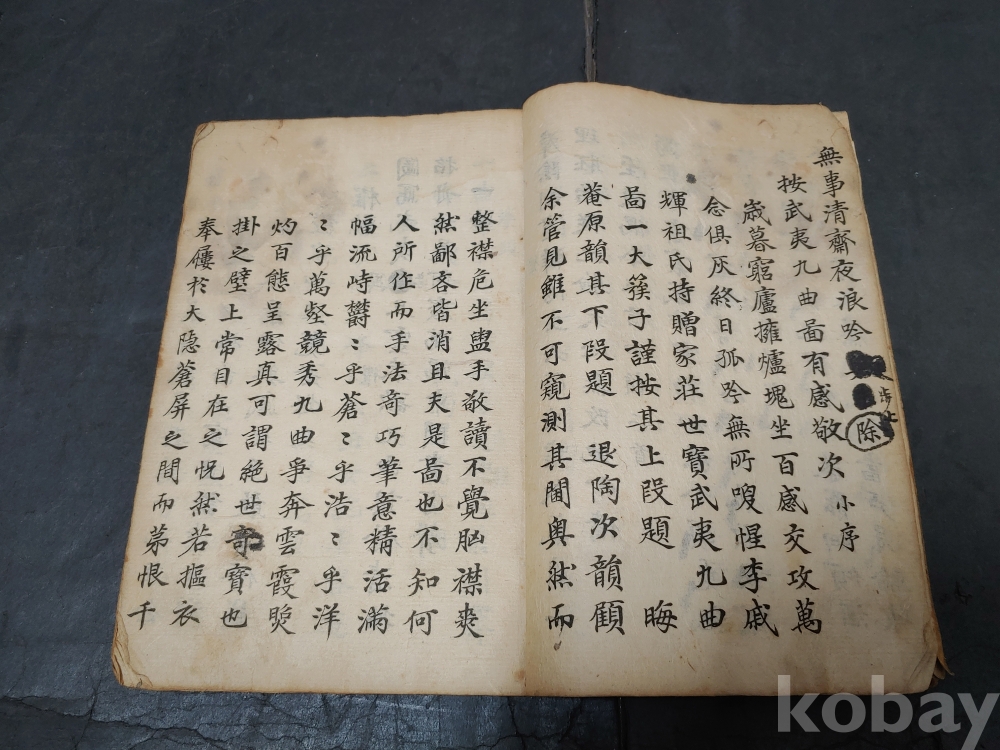 無事清齋夜浪吟
除
按武夷九曲啚有感敬次 小序
歲暮窮廬擁爐塊坐百感交攻萬
念俱灰終日孤吟無所嗖惺李戚
輝祖氏持贈家莊世寶武夷九曲
啚一大簇子謹按其上段題 晦
菴原韻其下段題 退陶次韻顧
余管見雖不可窺測其閫奧然而
整襟危坐盥手敬讀不覺胸襟爽
然鄙吝皆消且夫是啚也不知何
人所作而手法奇巧筆意精活滿
幅流峙欝〻乎蒼〻乎浩〻乎洋
〻乎萬壑競秀九曲爭奔雲霞
灼百態呈露真可謂絶世奇寶也
掛之壁上常目在之怳然若摳衣
奉屨於大隱蒼屏之間而苐恨千
kobay